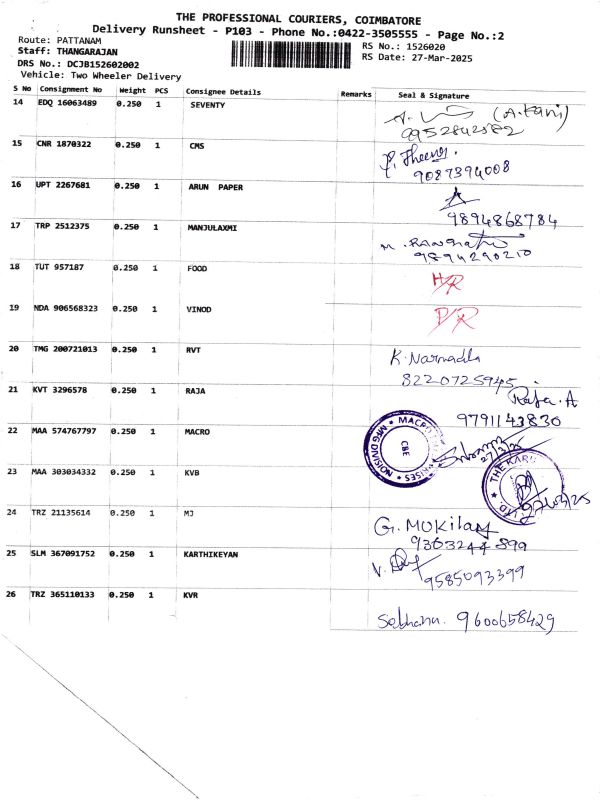 THE PROFESSIONAL COURIERS, COIMBATORE
Delivery Runsheet - P103 - Phone No.:0422-3505555 - Page No.:2
Route: PATTANAM
RS No.: 1526020
Staff: THANGARAJAN
RS Date: 27-Mar-2025
DRS No.: DCJB152602002
Vehicle: Two Wheeler Delivery
S No Consignment No Weight PCS Consignee Details Remarks Seal & Signature
14 EDQ 16063489 0.250 1 SEVENTY
(A.Rani)
9952842382
15 CNR 1870322 0.250 1 CMS
9087394008
16 UPT 2267681 0.250 1 ARUN PAPER
9894868784
17 TRP 2512375 0.250 1 MANJULAXMI
9894290210
18 TUT 957187 0.250 1 FOOD
H/R
19 NDA 906568323 0.250 1 VINOD
P/R
20 TMG 200721013 0.250 1 RVT
K. Narmadha
8220725945
21 KVT 3296578 0.250 1 RAJA
Raja. A
9791143830
22 MAA 574767797 0.250 1 MACRO
MACRO
MFG DIVISION
CBE
27/3/25
23 MAA 303034332 0.250 1 KVB
THE KARU
LTD.
27/03/25
24 TRZ 21135614 0.250 1 MJ
G. MUKILAN
9363244899
25 SLM 367091752 0.250 1 KARTHIKEYAN
9585093399
26 TRZ 365110133 0.250 1 KVR
9600658429